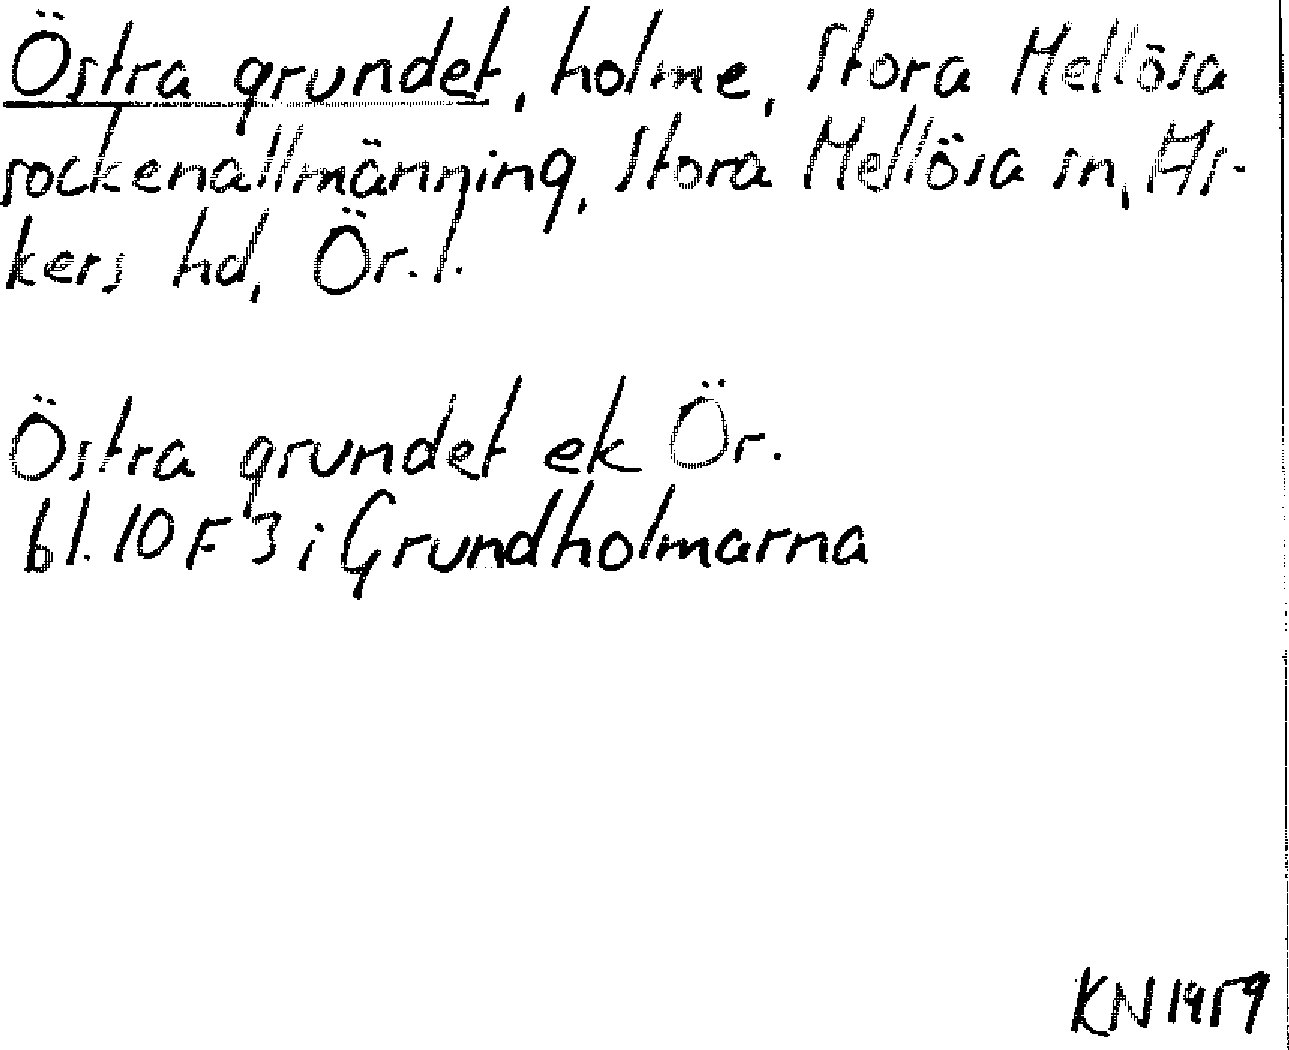 Östra grundet, holme, Stora Mellösa
sockenallmänning, Stora Mellösa sn, As-
kers hd, Ör. l.
Östra grundet ek Ör.
bl. 10 F 3 i Grundholmarna
KN 1959